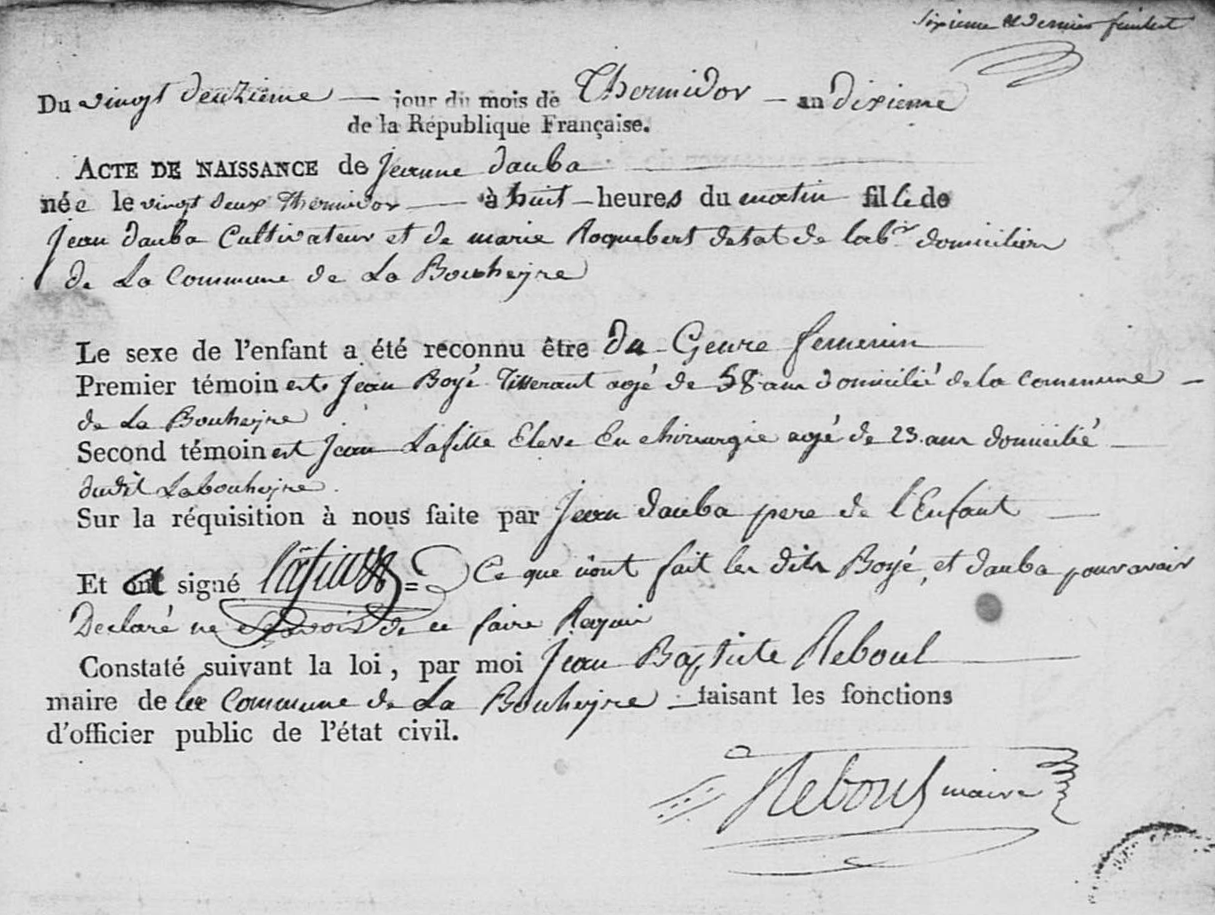 Sixieme et dernier feuillet
Du vingt deuxieme — jour du mois de Thermidor — an dixieme
de la République Française.
ACTE DE NAISSANCE de Jeanne dauba
née le vingt deux Thermidor — à huit — heures du matin fille de
Jean dauba Cultivateur et de marie Roquebert detat de labr domicilien
de La Commune de La Bouheyre
Le sexe de l'enfant a été reconnu être du Genre femenin
Premier témoin est Jean Boyé Tisserant agé de 58 ans domicilié de la commune —
de La Bouheyre
Second témoin est Jean Lafitte Eleve En chirurgie agé de 23 ans domicilié —
dudit Labouheyre.
Sur la réquisition à nous faite par Jean dauba pere de l'Enfant —
Et ont signé Lafitte = Ce que n'ont fait les dits Boyé, et dauba pour avoir
Declaré ne de ce faire
Constaté suivant la loi, par moi Jean Baptiste Reboul —
maire de la Commune de La Bouheyre — faisant les fonctions
d'officier public de l'état civil.
Reboul maire